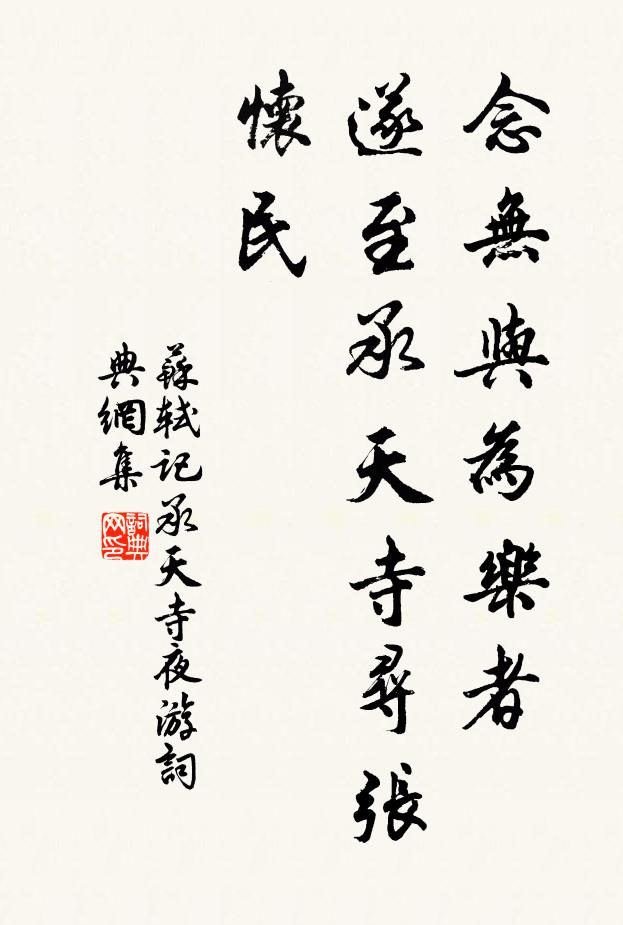 念無與為樂者
遂至承天寺尋張
懷民
蘇軾記承天寺夜游詞
典網集
詞典
网印